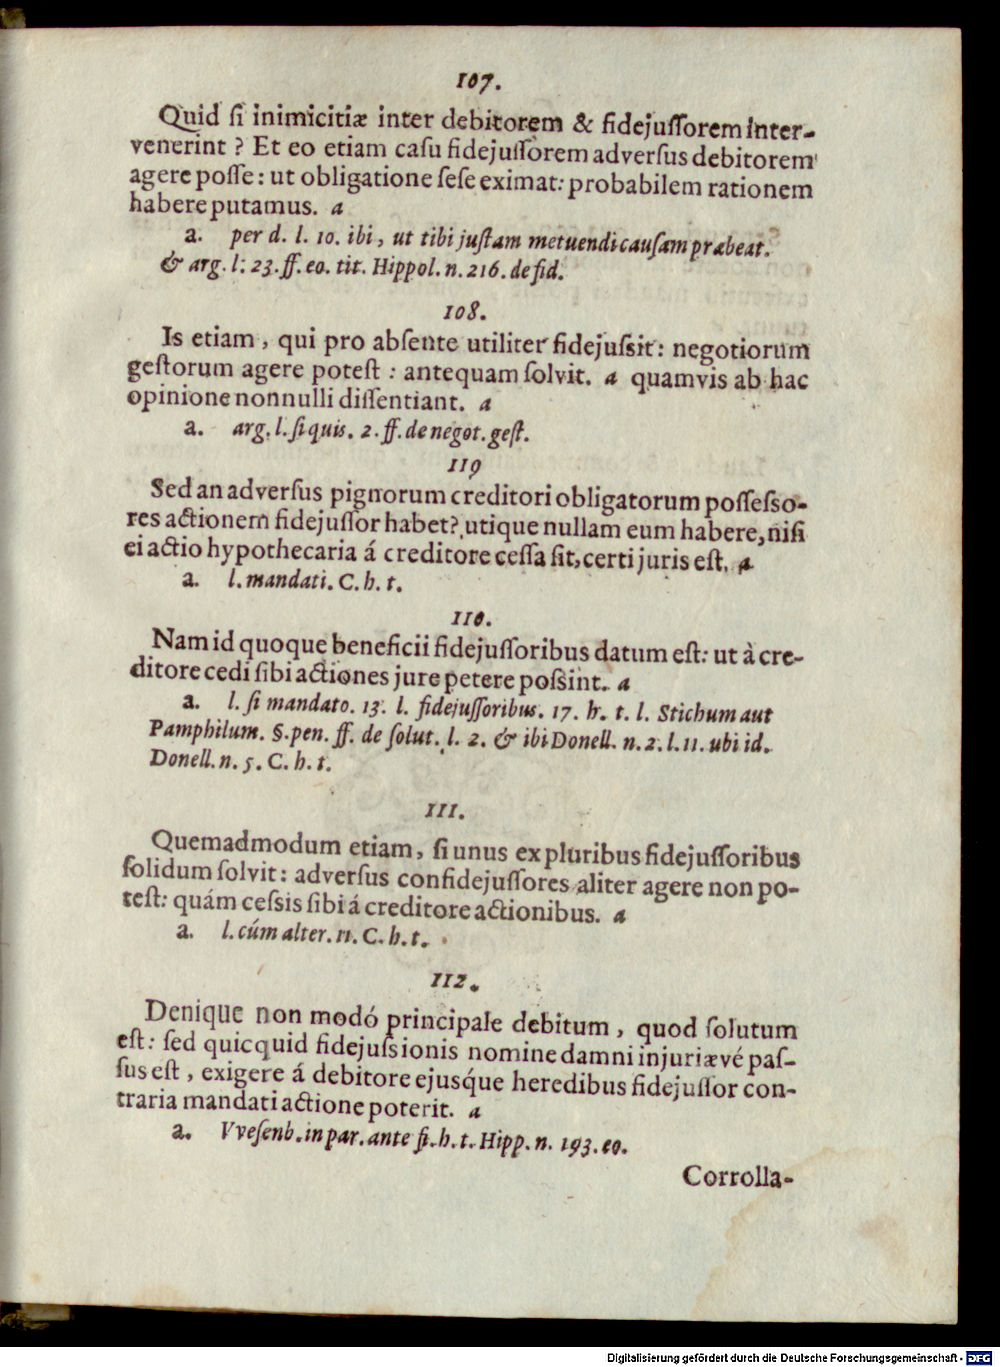 107.
Quid ſi inimicitiæ inter debitorem & fidejuſſorem inter-
venerint ? Et eo etiam caſu fidejuſſorem adverſus debitorem
agere poſſe: ut obligatione ſeſe eximat: probabilem rationem
habere putamus. a
a. per d. l. 10. ibi, ut tibi juſtam metuendi cauſam præbeat.
& arg. l. 23. ff. eo. tit. Hippol. n. 216. de fid.
108.
Is etiam, qui pro abſente utiliter fidejuſsit: negotiorum
geſtorum agere poteſt : antequam ſolvit. a quamvis ab hac
opinione nonnulli diſſentiant. a
a. arg. l. ſi quis. 2. ff. de negot. geſt.
119
Sed an adverſus pignorum creditori obligatorum poſſeſso-
res actionem fidejuſſor habet? utique nullam eum habere, niſi
ei actio hypothecaria á creditore ceſſa ſit, certi juris eſt. a
a. l. mandati. C. h. t.
110.
Nam id quoque beneficii fidejuſſoribus datum eſt: ut à cre-
ditore cedi ſibi actiones jure petere poſsint. a
a. l. ſi mandato. 13. l. fidejuſſoribus. 17. h. t. l. Stichum aut
Pamphilum. §. pen. ff. de ſolut. l. 2. & ibi Donell. n. 2. l. 11. ubi id.
Donell. n. 5. C. h. t.
111.
Quemadmodum etiam, ſi unus ex pluribus fidejuſſoribus
ſolidum ſolvit: adverſus confidejuſſores aliter agere non po-
teſt: quám ceſsis ſibi á creditore actionibus. a
a. l. cúm alter. 11. C. h. t.
112.
Denique non modó principale debitum, quod ſolutum
eſt: ſed quicquid fidejuſsionis nomine damni injuriævé paſ-
ſus eſt, exigere á debitore ejusq́ue heredibus fidejuſſor con-
traria mandati actione poterit. a
a. Vveſenb. in par. ante fi. h. t. Hipp. n. 193. eo.
Corrolla-
Digitalisierung gefördert durch die Deutsche Forschungsgemeinschaft - DFG